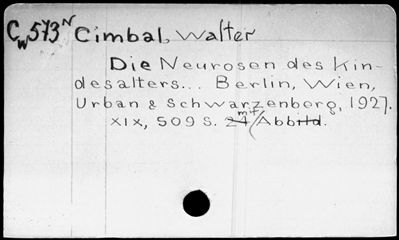 CW573N Cimbal, Walter
Die Neurosen des Kin-
desalters... Berlin, Wien,
Urban & Schwarzenberg, 1927.
XIX, 509 S. mit Abb.